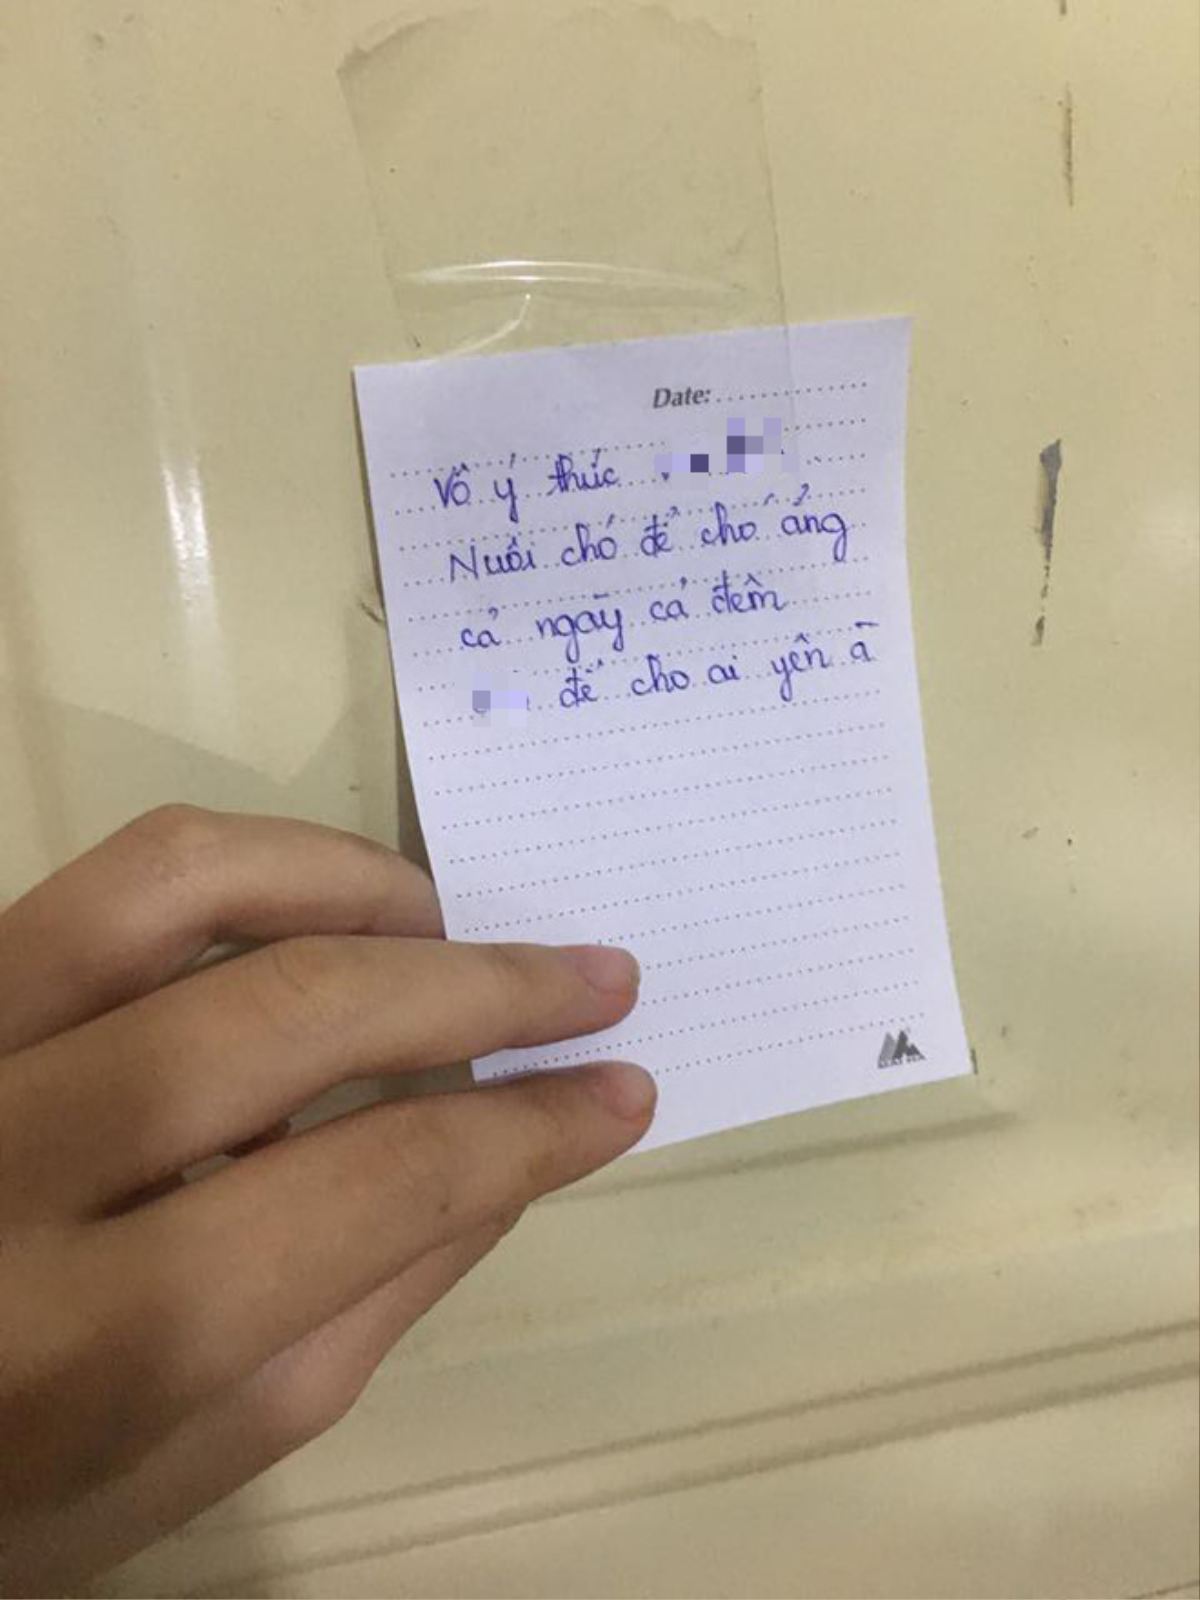 Date:
Vô ý thức
Nuôi chó để cho ẳng
cả ngày cả đêm
để cho ai yên à